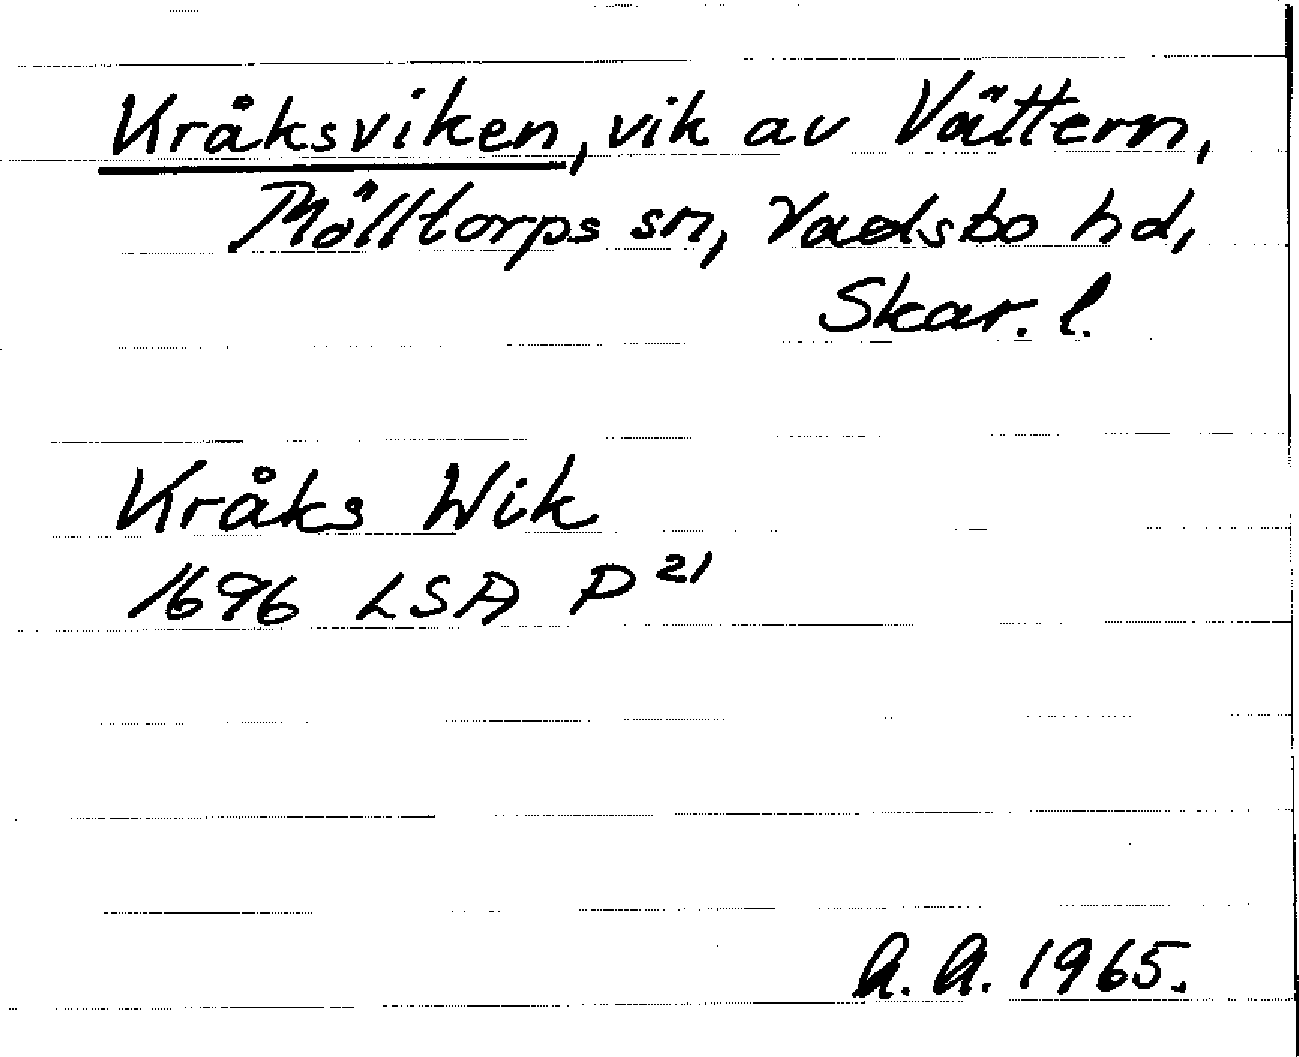 Kråksviken, vik av Vättern,
Mölltorps sn, Vadsbo hd,
Skar. l.
Kråks Wik
1696 LSA P 21
A. A. 1965.